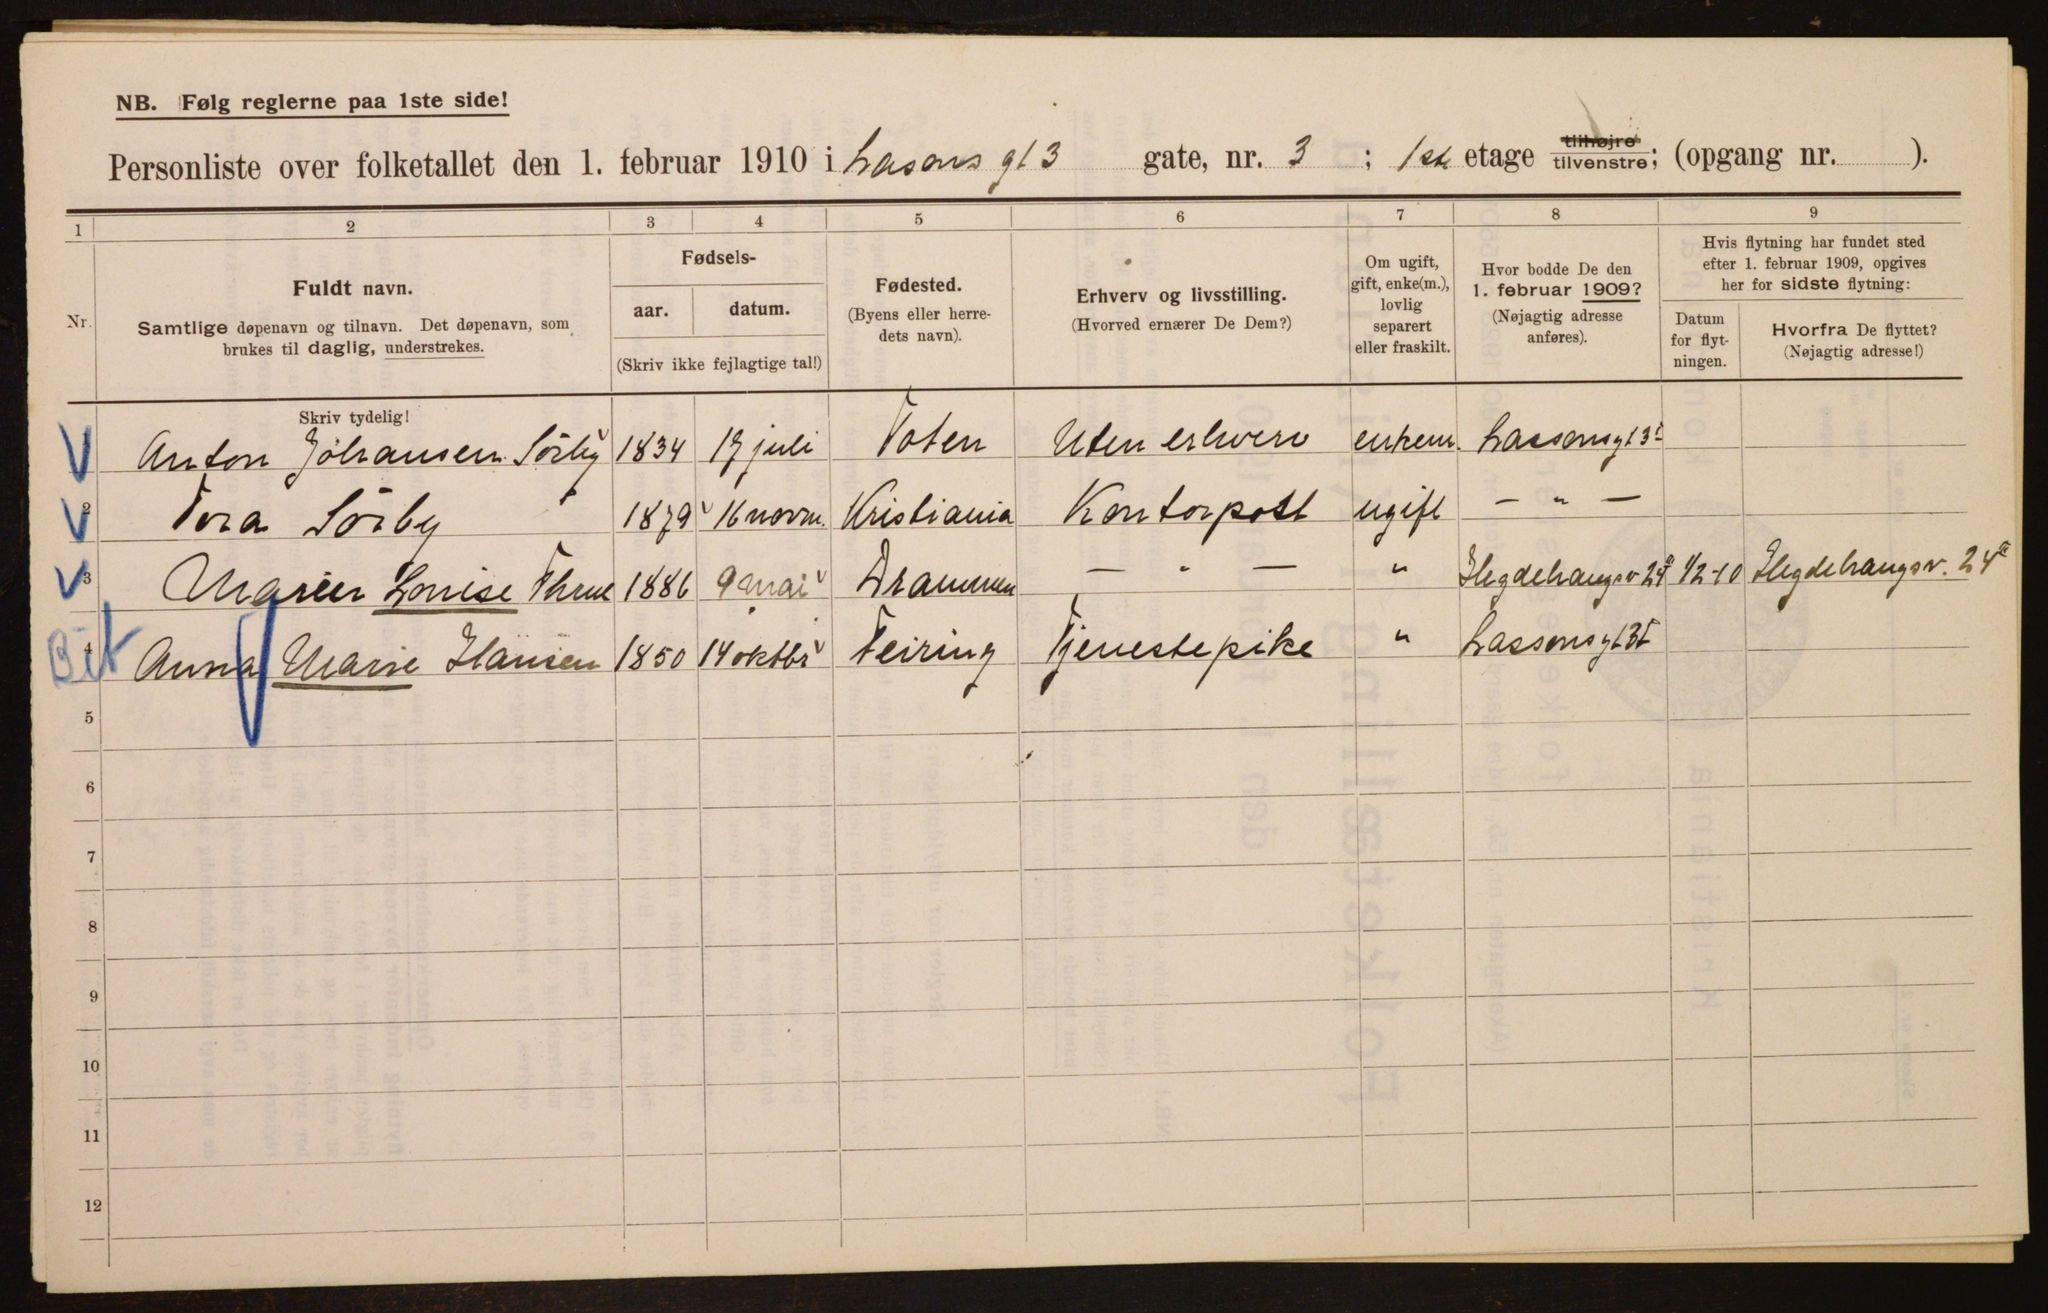 NB. Følg reglerne paa 1ste side!
Personliste over folketallet den 1. februar 1910 i Lasons gt 3 gate, nr. 3 ; 1ste etage tilhøjre tilvenstre; (opgang nr. ).
1 2 3 4 5 6 7 8 9
Nr.
Fuldt navn.
Samtlige døpenavn og tilnavn. Det døpenavn, som
brukes til daglig, understrekes.
Fødsels-
aar. datum.
(Skriv ikke fejlagtige tal!)
Fødested.
(Byens eller herre-
dets navn).
Erhverv og livsstilling.
(Hvorved ernærer De Dem?)
Om ugift,
gift, enke(m.),
lovlig
separert
eller fraskilt.
Hvor bodde De den
1. februar 1909?
(Nøjagtig adresse
anføres).
Hvis flytning har fundet sted
efter 1. februar 1909, opgives
her for sidste flytning:
Datum
for flyt-
ningen.
Hvorfra De flyttet?
(Nøjagtig adresse!)
Skriv tydelig!
V Anton Johansen Sörby 1834 17 juli Toten Uten erhverv enkem. Lassonsgt 3 I
V 2 Tora Sörby 1879 16 novm. Kristiania Kontorpost ugift — " —
V 3 Maren Louise Thrue 1886 9 mai Drammen — " — " Hegdehaugsv 24 1/2-10 Hegdehaugsv. 24
Bet 4 Anna Marie Hansen 1850 14 oktbr Feiring Tjenestepike " Lassonsgt 3 I
5
6
7
8
9
10
11
12